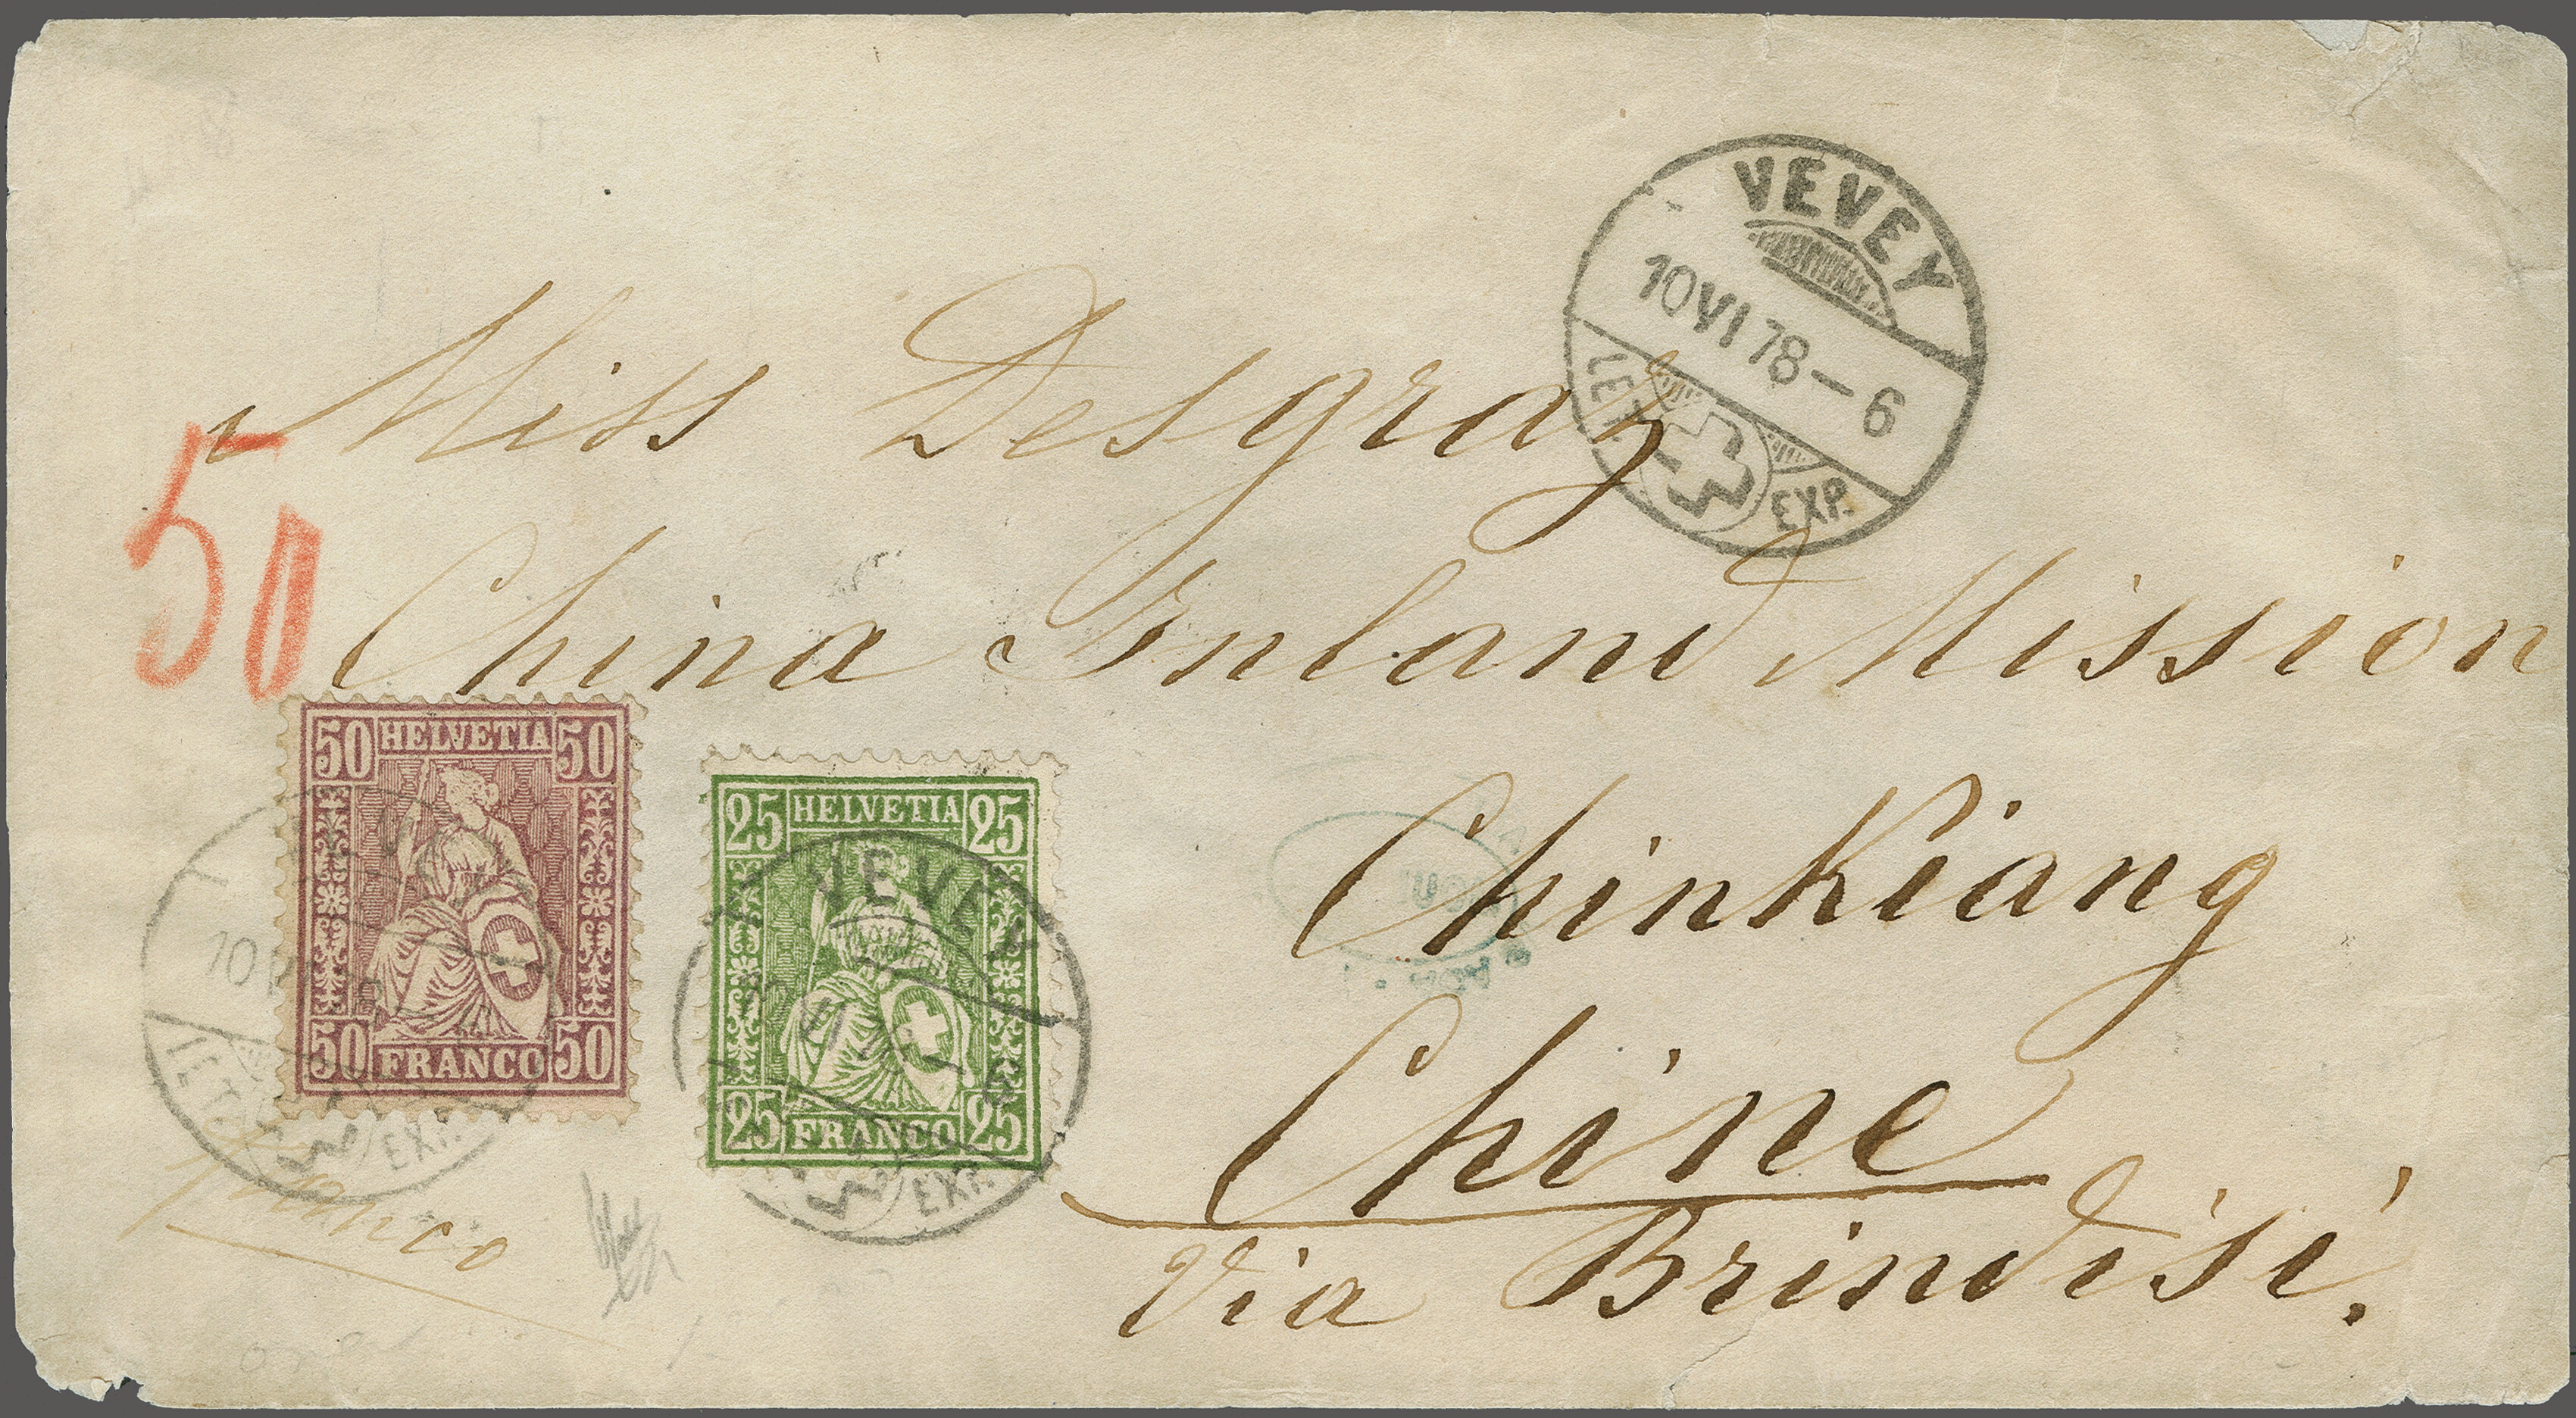 VEVEY
10 VI 78 – 6
LET. EXP.
Miss Desgraz
50
China Inland Mission
50 HELVETIA 50
50 FRANCO 50
25 HELVETIA 25
VEVEY
25 FRANCO 25
10
LET. EXP.
EXP.
ChinKiang
Chine
Franco
Via Brindisi.